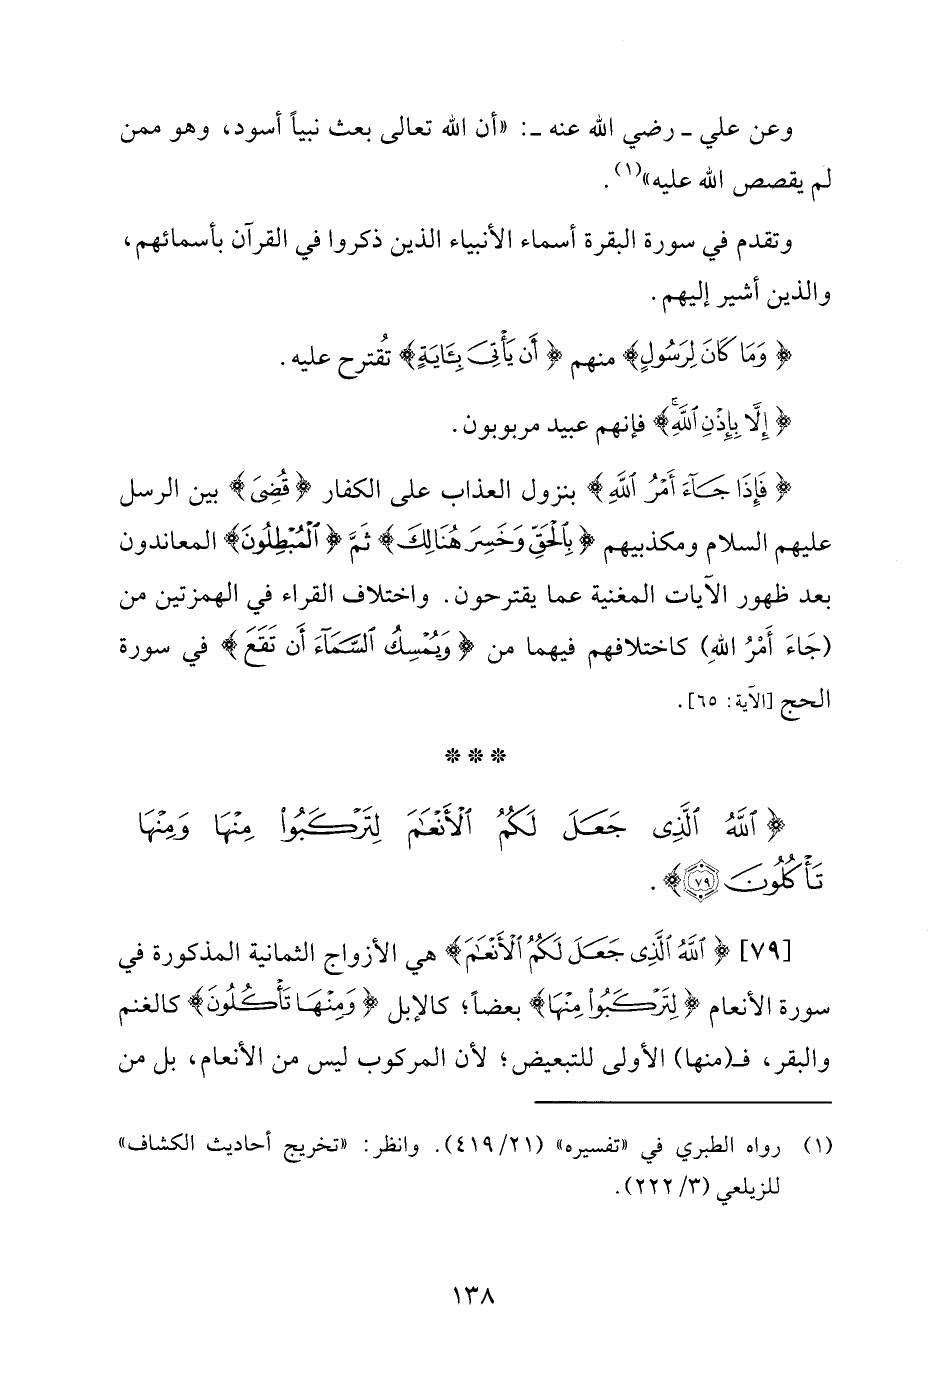 وعن علي ـ رضي الله عنه ـ: «أن الله تعالى بعث نبياً أسود، وهو ممن
لم يقصص الله عليه»(١).
وتقدم في سورة البقرة أسماء الأنبياء الذين ذكروا في القرآن بأسمائهم،
والذين أشير إليهم.
﴿وَمَا كَانَ لِرَسُولٍ﴾ منهم ﴿أَن يَأْتِيَ بِـَٔايَةٍ﴾ تُقترح عليه.
﴿إِلَّا بِإِذْنِ ٱللَّهِۚ﴾ فإنهم عبيد مربوبون.
﴿فَإِذَا جَآءَ أَمْرُ ٱللَّهِ﴾ بنزول العذاب على الكفار ﴿قُضِىَ﴾ بين الرسل
عليهم السلام ومكذبيهم ﴿بِٱلْحَقِّ وَخَسِرَ هُنَالِكَ﴾ ثَمَّ ﴿ٱلْمُبْطِلُونَ﴾ المعاندون
بعد ظهور الآيات المغنية عما يقترحون. واختلاف القراء في الهمزتين من
(جَاءَ أَمْرُ اللهِ) كاختلافهم فيهما من ﴿وَيُمْسِكُ ٱلسَّمَآءَ أَن تَقَعَ﴾ في سورة
الحج [الآية: ٦٥].
***
﴿ٱللَّهُ ٱلَّذِى جَعَلَ لَكُمُ ٱلْأَنْعَٰمَ لِتَرْكَبُوا۟ مِنْهَا وَمِنْهَا
تَأْكُلُونَ ٧٩﴾.
[٧٩] ﴿ٱللَّهُ ٱلَّذِى جَعَلَ لَكُمُ ٱلْأَنْعَٰمَ﴾ هي الأزواج الثمانية المذكورة في
سورة الأنعام ﴿لِتَرْكَبُوا۟ مِنْهَا﴾ بعضاً؛ كالإبل ﴿وَمِنْهَا تَأْكُلُونَ﴾ كالغنم
والبقر، فـ(منها) الأولى للتبعيض؛ لأن المركوب ليس من الأنعام، بل من
(١) رواه الطبري في «تفسيره» (٢١/ ٤١٩). وانظر: «تخريج أحاديث الكشاف»
للزيلعي (٣/ ٢٢٢).
١٣٨